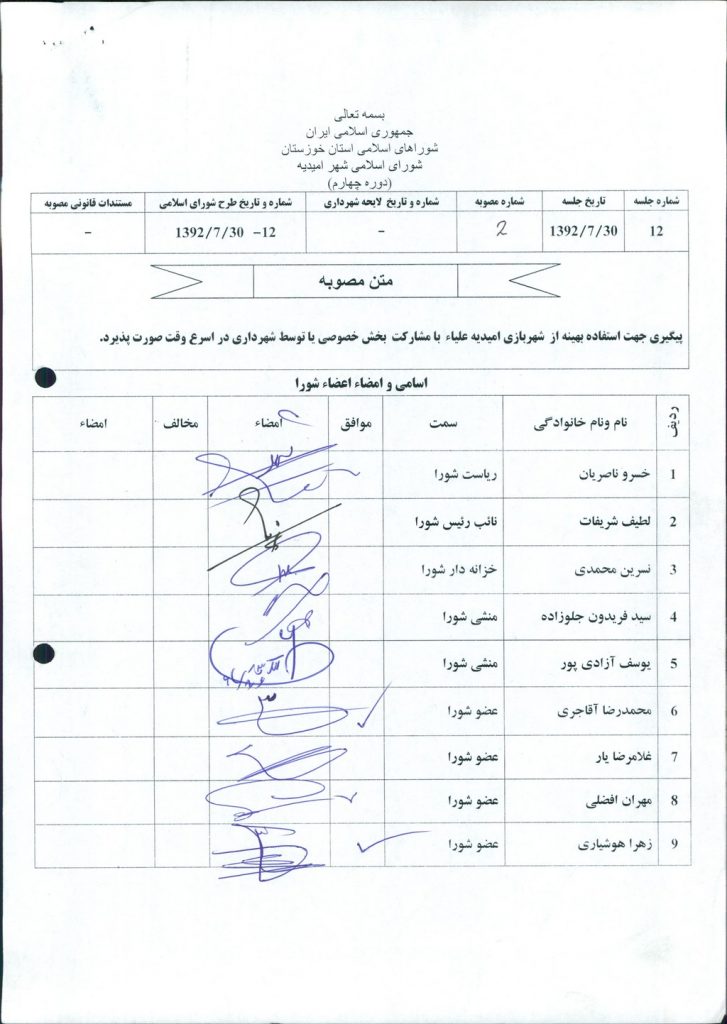 بسمه تعالی
جمهوری اسلامی ایران
شوراهای اسلامی استان خوزستان
شورای اسلامی شهر امیدیه
(دوره چهارم)
شماره جلسه تاریخ جلسه شماره مصوبه شماره و تاریخ لایحه شهرداری شماره و تاریخ طرح شورای اسلامی مستندات قانونی مصوبه
12 1392/7/30 2 - 12- 1392/7/30 -
متن مصوبه
پیگیری جهت استفاده بهینه از شهربازی امیدیه علیاء با مشارکت بخش خصوصی یا توسط شهرداری در اسرع وقت صورت پذیرد.
اسامی و امضاء اعضاء شورا
ردیف نام ونام خانوادگی سمت موافق امضاء مخالف امضاء
1 خسرو ناصریان ریاست شورا
2 لطیف شریفات نائب رئیس شورا
3 نسرین محمدی خزانه دار شورا
4 سید فریدون جلوزاده منشی شورا
5 یوسف آزادی پور منشی شورا
6 محمدرضا آقاجری عضو شورا
7 غلامرضا یار عضو شورا
8 مهران افضلی عضو شورا
9 زهرا هوشیاری عضو شورا